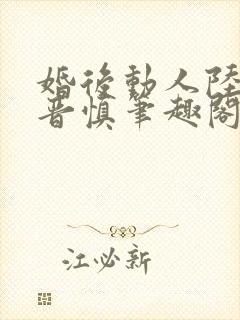 婚後動人陸
晋慎筆趣閣
江必新